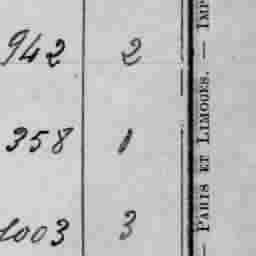 942 2
358 1
1003 3
— PARIS ET LIMOGES. — IMP